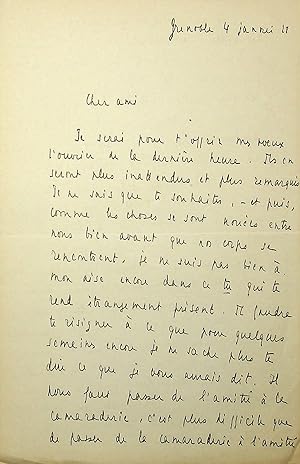 Grenoble 4 janvier 21
Cher ami
Je serai pour t'offrir mes voeux
l'ouvrier de la dernière heure. Ils en
seront plus inattendus et plus remarqués
Je ne sais que te souhaiter, - et puis,
comme les choses se sont nouées entre
nous bien avant que nos corps se
rencontrent, je ne suis pas bien à
mon aise encore dans ce tu qui te
rend étrangement présent. Il faudra
te résigner à ce que pour quelques
semaines encore je ne sache plus te
dire ce que je vous aurais dit. Il
nous faut passer de l'amitié à la
camaraderie, c'est plus difficile que
de passer de la camaraderie à l'amitié